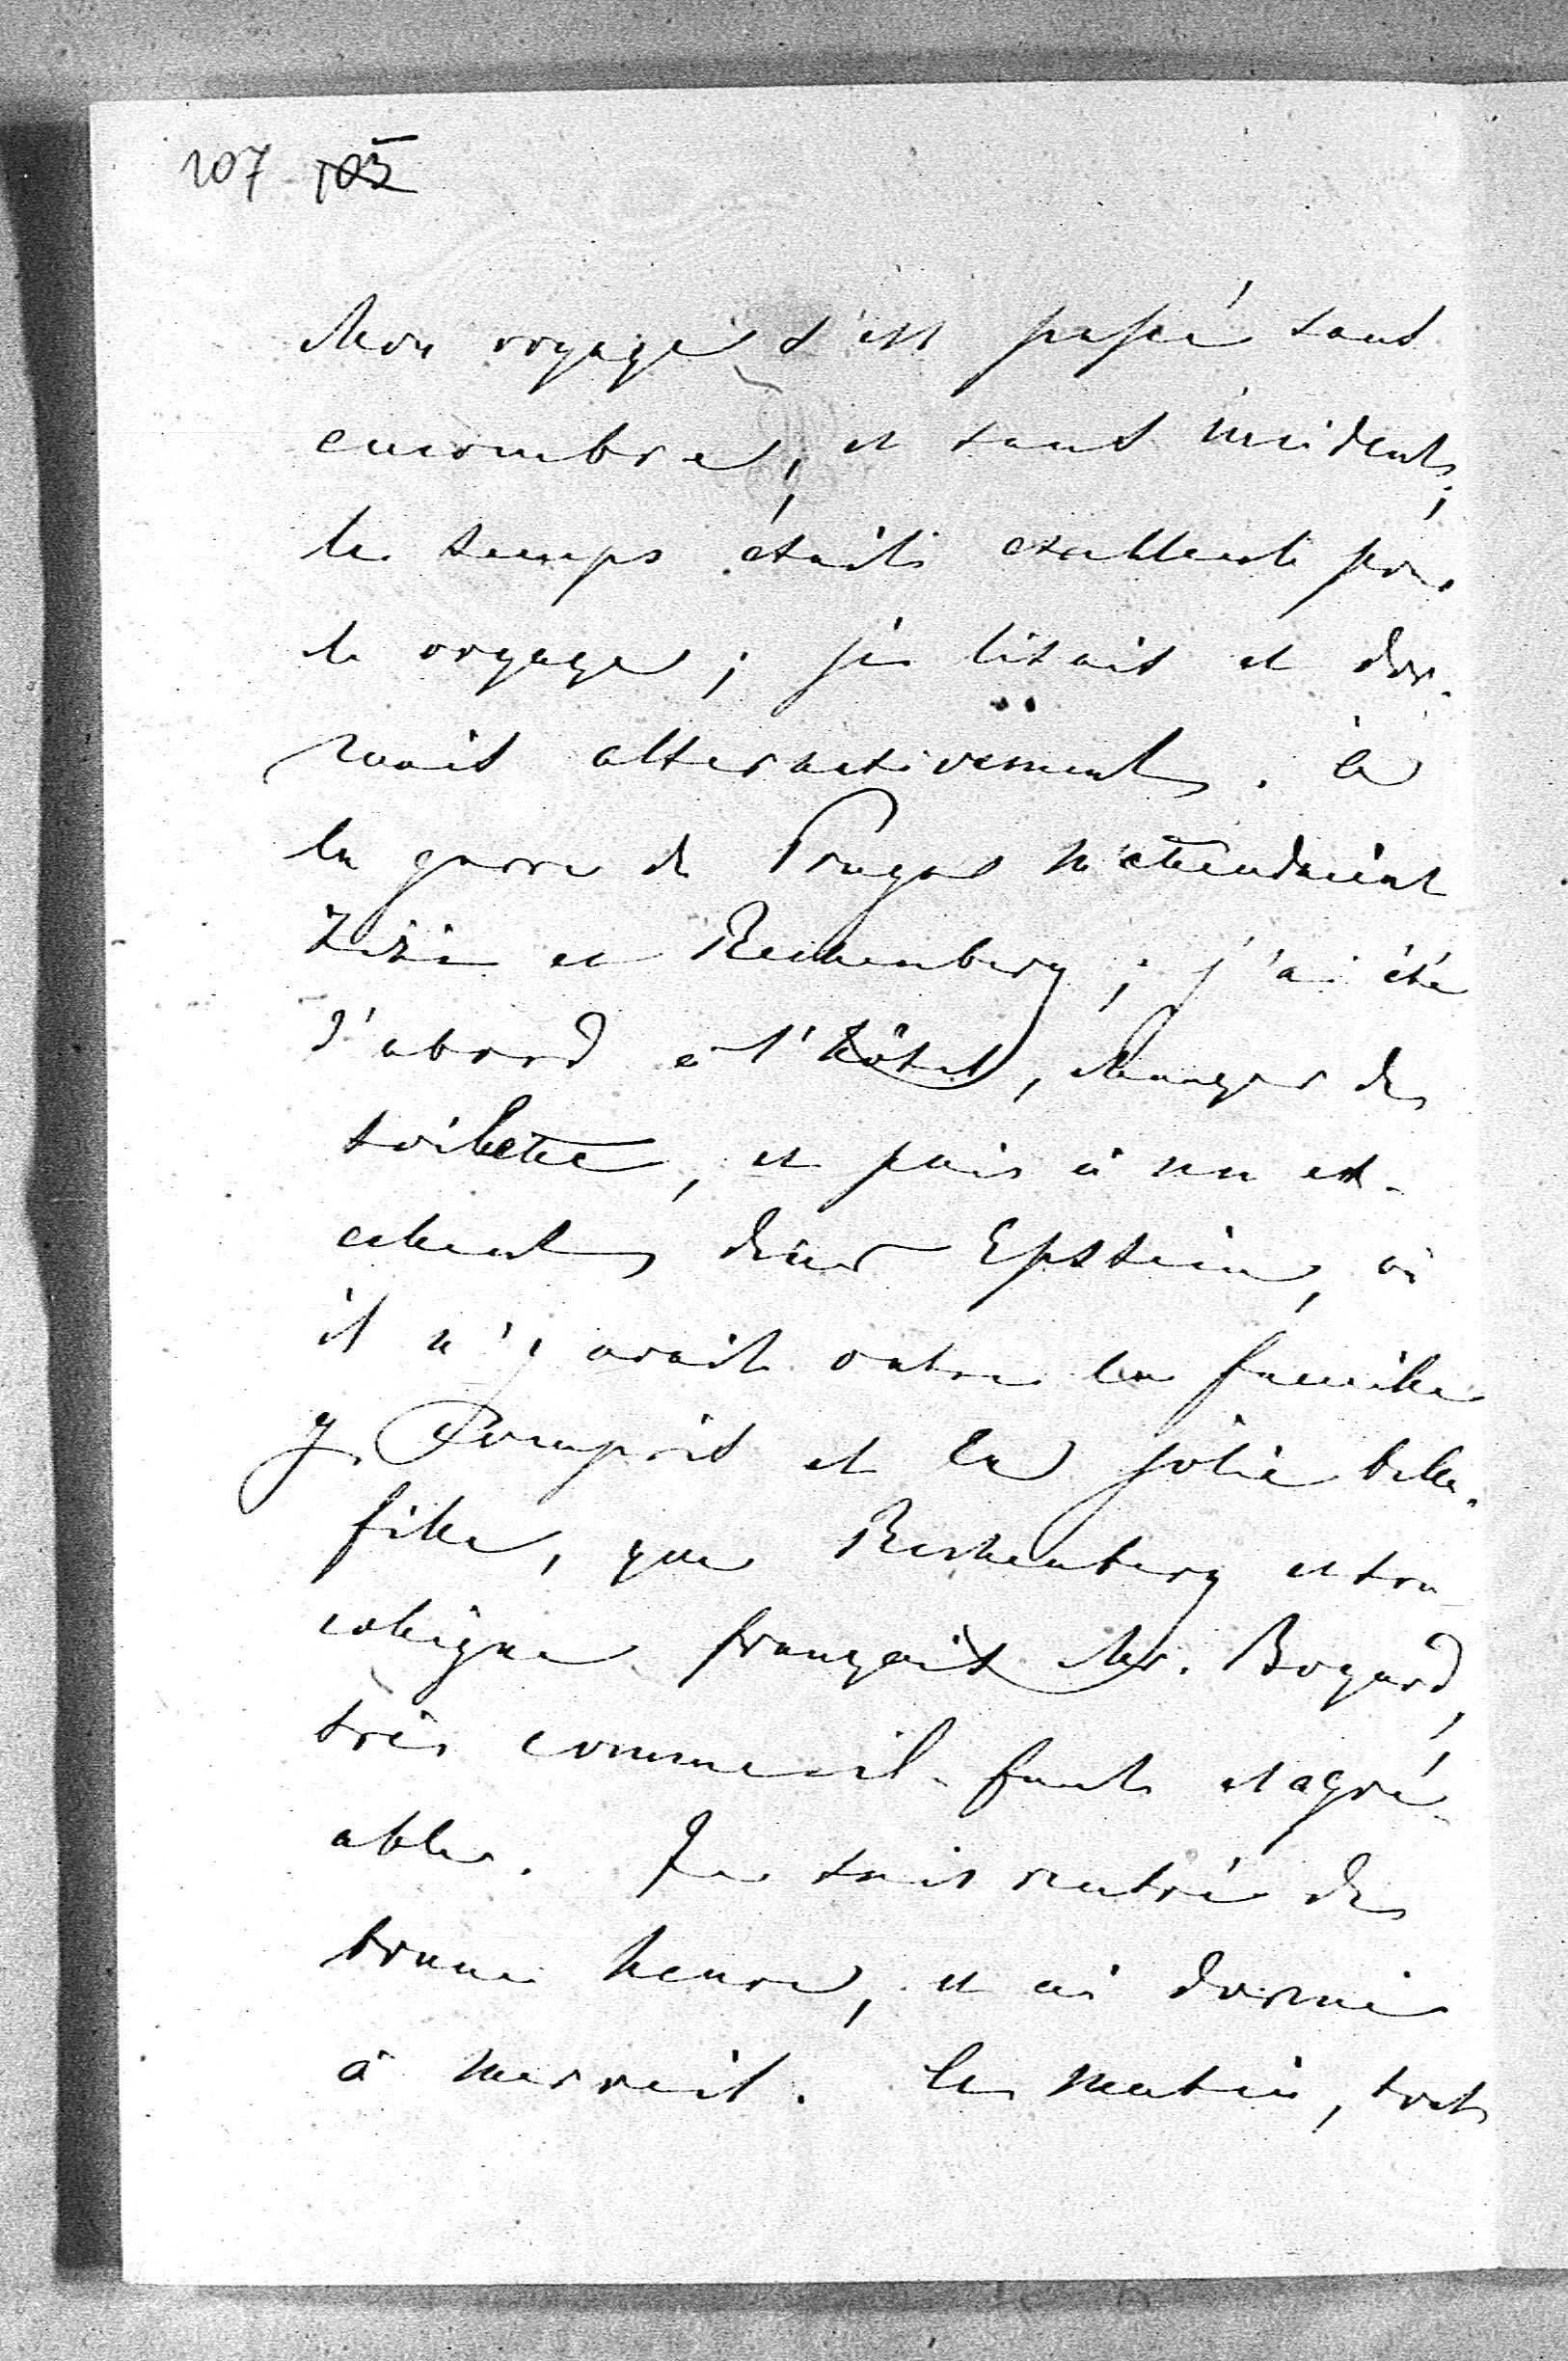 107 103
Mon voyage s'est passé sans
encombre, et sans incidents;
le temps était excellent pour
le voyage; je lisais et dor-
mais alternativement. à
la garre de Prague m'attendaient
Zizi et Rechenberg; j'ai été
d'abord à l'hôtel, changer de
toilette, et puis à un ex-
cellent diner Epstein, où
il n'y avait outre la famille
y compris et la jolie belle-
fille, que Rechenberg et son
collègue français Mr. Bogard,
très comme-il-faut et agré-
able. Je suis rentré de
bonne heure, et ai dormi
à merveil. Le matin, tout